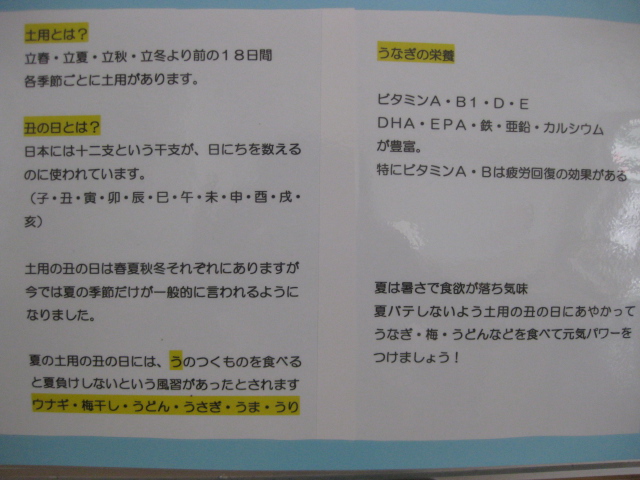 土用とは？
立春・立夏・立秋・立冬より前の１８日間
各季節ごとに土用があります。
丑の日とは？
日本には十二支という干支が、日にちを数える
のに使われています。
（子・丑・寅・卯・辰・巳・午・未・申・酉・戌・
亥）
土用の丑の日は春夏秋冬それぞれにありますが
今では夏の季節だけが一般的に言われるように
なりました。
夏の土用の丑の日には、うのつくものを食べる
と夏負けしないという風習があったとされます
ウナギ・梅干し・うどん・うさぎ・うま・うり
うなぎの栄養
ビタミンＡ・Ｂ１・Ｄ・Ｅ
ＤＨＡ・ＥＰＡ・鉄・亜鉛・カルシウム
が豊富。
特にビタミンＡ・Ｂは疲労回復の効果がある
夏は暑さで食欲が落ち気味
夏バテしないよう土用の丑の日にあやかって
うなぎ・梅・うどんなどを食べて元気パワーを
つけましょう！